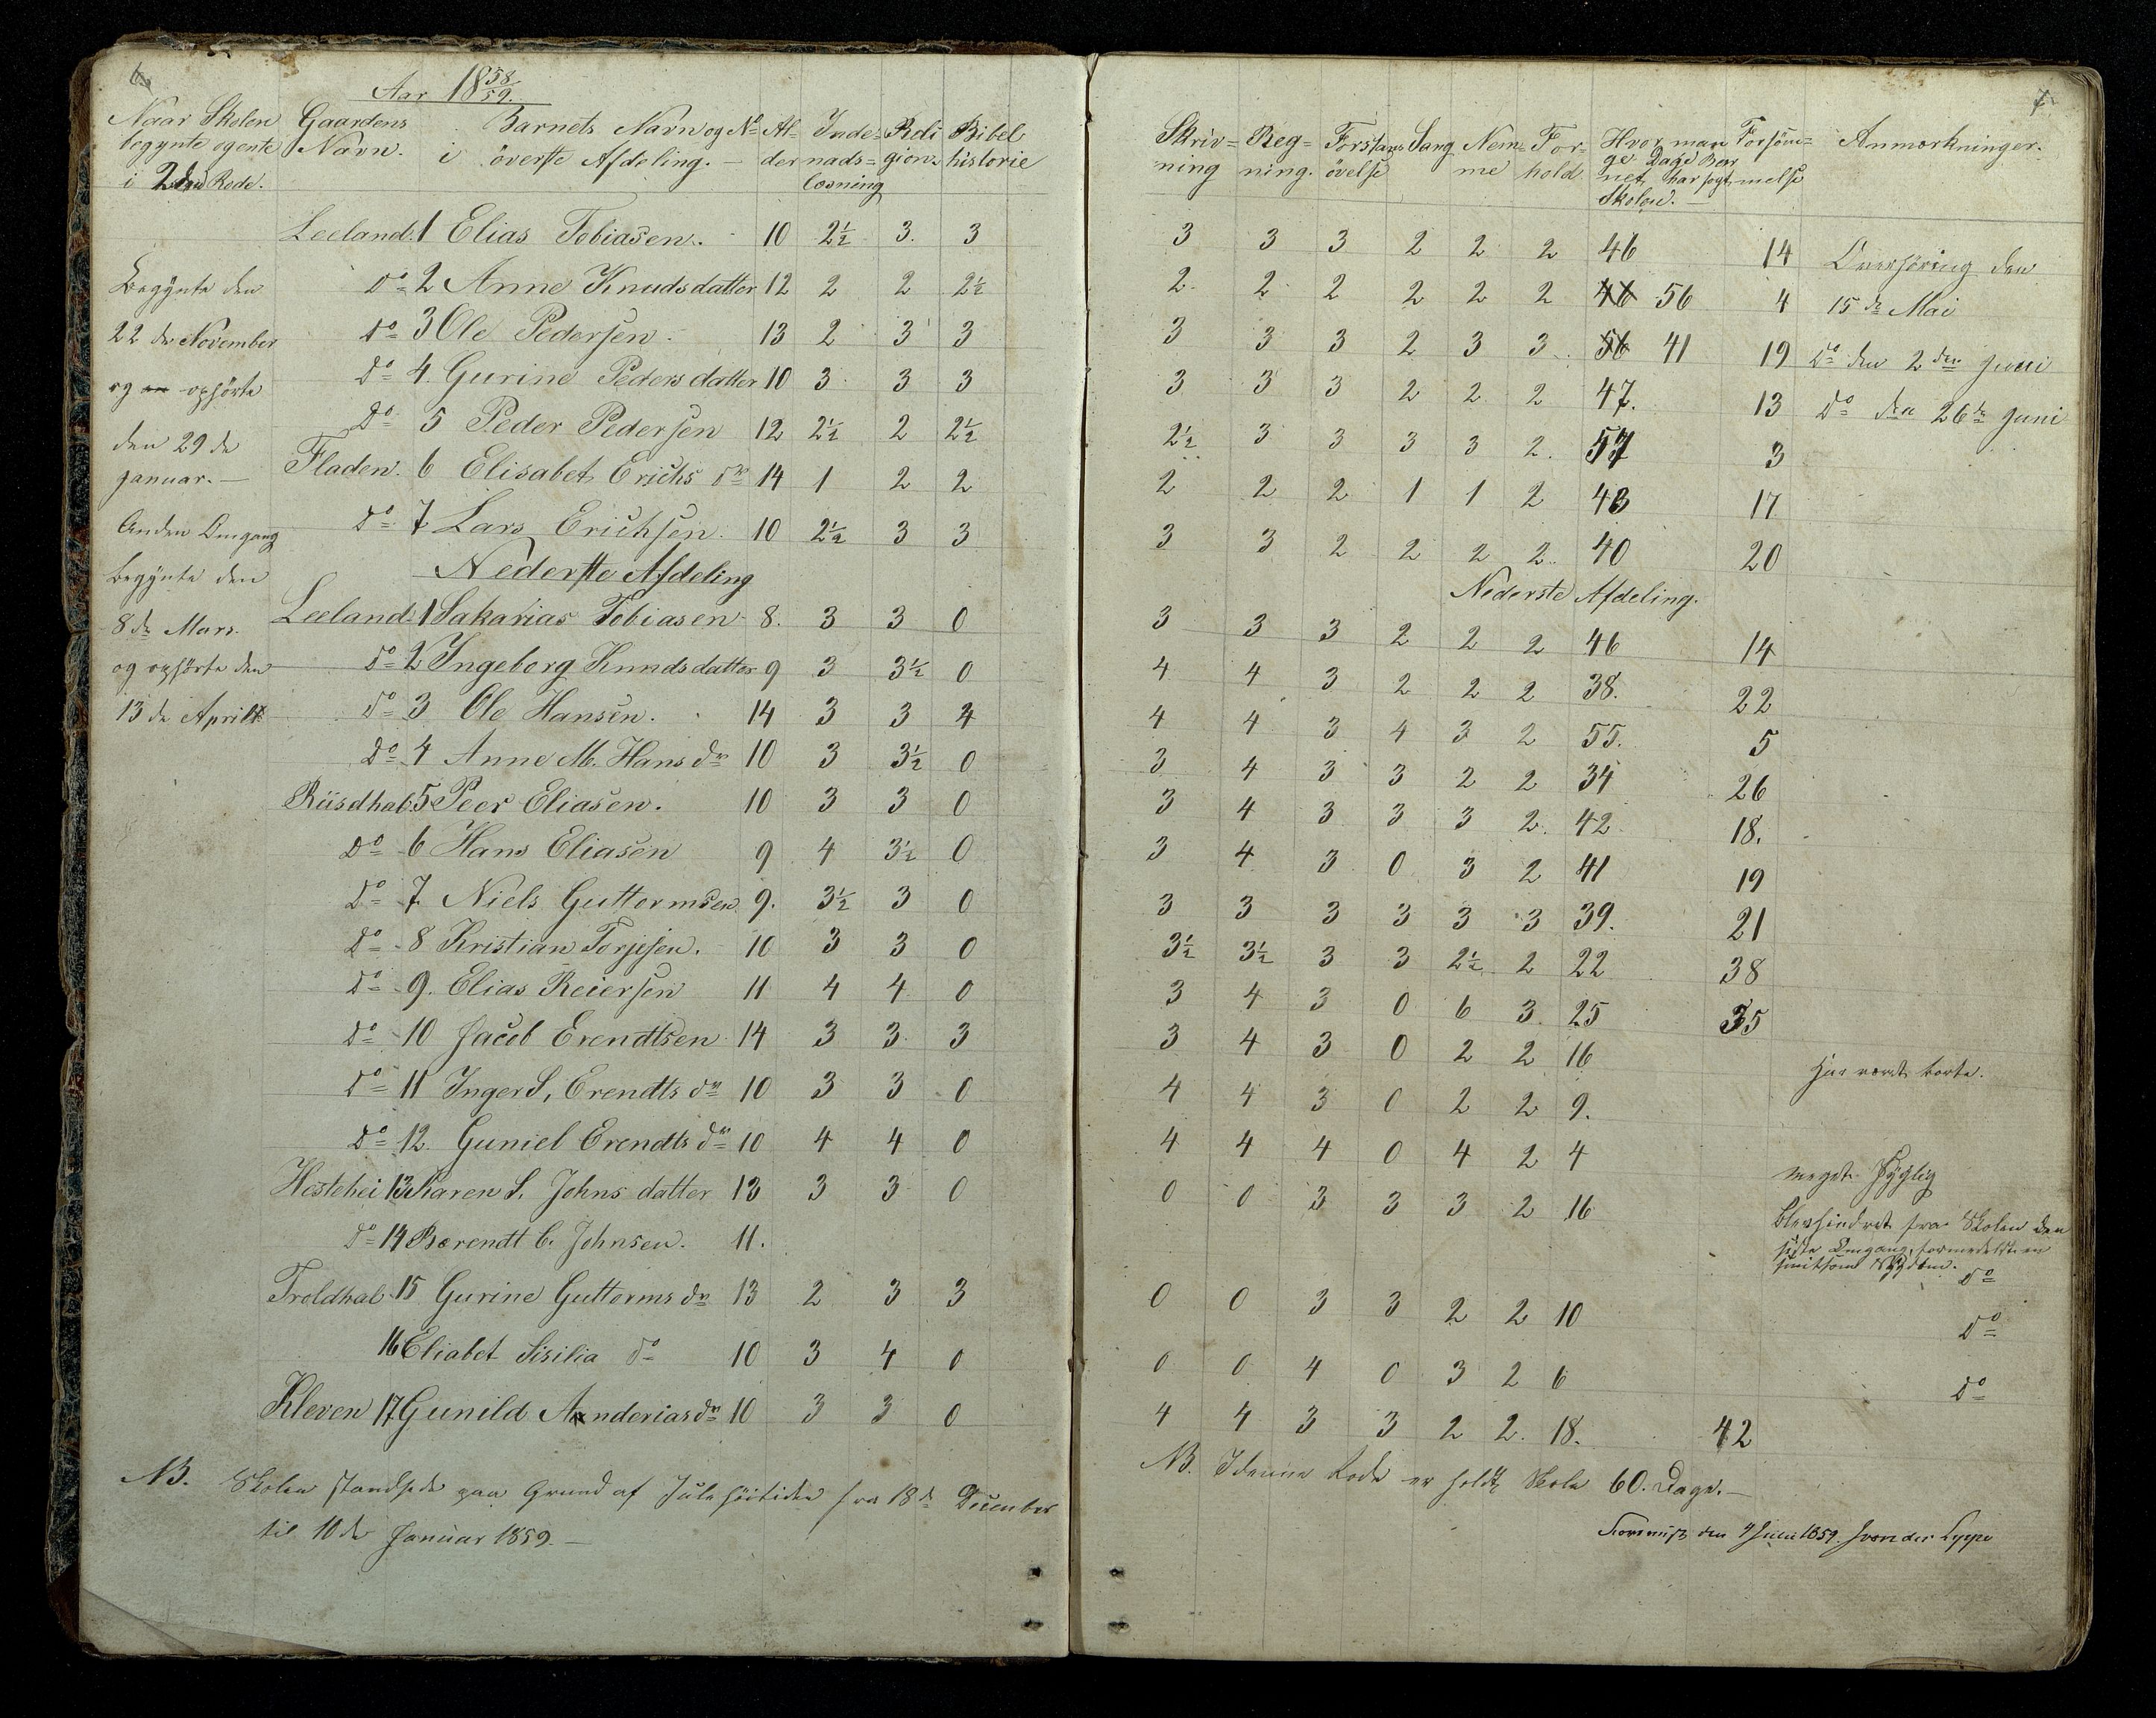 6
Aar 18 58/59.
Naar Skolen Gaardens Barnets Navn og No Al= Inde= Reli Bibel
begynte og ente Navn. i överste Afdeling. – der nads= gion. historie
i 2den Rode. læsning
Leeland. 1 Elias Tobiasen. 10 2½ 3. 3
Begynte den Do 2 Anne Knudsdatter 12 2 2 2½
22 de November Do 3 Ole Pedersen. 13 2 3 3
og ophörte Do 4. Gurine Pedersdatter 10 3 3 3
den 29 de Do 5 Peder Pedersen 12 2½ 2 2½
Januar. – Fladen. 6 Elisabet Erichs dr 14 1 2 2
Anden Omgang Do 7 Lars Erichsen. 10 2½ 3 3
Begynte den Nederste Afdeling
8 de Mars. Leeland. 1 Sakarias Tobiasen 8. 3 3 0
og ophörte den Do 2 Ingeborg Knudsdatter 9 3 3½ 0
13 de April Do 3 Ole Hansen. 14 3 3 4
Do 4 Anne M. Hans dr 10 3 3½ 0
Riisdhal. 5 Peer Eliasen. 10 3 3 0
Do 6 Hans Eliasen 9 4 3½ 0
Do 7 Niels Guttormsen 9. 3½ 3 0
Do 8 Kristian Torjesen. 10 3 3 0
Do 9. Elias Reiersen 11 4 4 0
Do 10 Jacob Erendtsen 14 3 3 3
Do 11 Inger S, Erendts dr 10 3 3 0
Do 12. Guniel Erendts dr 10 4 4 0
Hestehei 13 Karen S. Johns datter 13 3 3 0
Do 14 Berendt C. Johnsen. 11.
Troldhal 15 Gurine Guttorms dr 13 2 3 3
16 Eliabet Sisilia do 10 3 4 0
Kleven 17 Gunild Anderias dr 10 3 3 0
NB. Skolen standsede paa Grund af Julehöitiden fra 18 de December
til 10 de Januar 1859. –
7
Skriv= Reg= Forstans Sang Nem= For= Hvor man Forsöm= Anmærkninger.
ning ning. övelse me hold ge Dage Bar melse
net har sögt
Skolen. –
3 3 3 2 2 2 46 14 Overhöring den
2 2 2 2 2 2 46 56 4 15 de Mai
3 3 3 2 3 3 56 41 19 Do den 2 den Juni
3 3 3 2 2 2 47. 13 Do den 26 de Juni
2½ 3 3 3 3 2. 57 3
2 2 2 1 1 2 43 17
3 3 2 2 2 2 40 20
Nederste Afdeling.
3 3 3 2 2 2 46 14
4 4 3 2 2 2 38. 22
4 4 3 4 3 2 55. 5
3 4 3 3 2 2 34 26
3 4 3 3 3 2. 42 18.
3 4 3 0 3 2 41 19
3 3 3 3 3 3 39. 21
3½ 3½ 3 3 2½ 2 22 38
3 4 3 0 6 3. 25 35
3 4 3 0 2 2 16
har været borte.
4 4 3 0 2 2 9.
4 4 4 0 4 2 4
meget Syglig
0 0 3 3 3 2 16
Blev hindret fra Skolen den
sidste Omgang, formedelst en
smitsom Sygdom.
Do
0 0 3 3 2 2 10
Do
0 0 4 0 3 2 6
Do
4 4 3 3 2 2. 18. 42
NB. I denne Rode er holdt Skole 60. Dage. –
den 4 Juni 1859. J von der Lippe